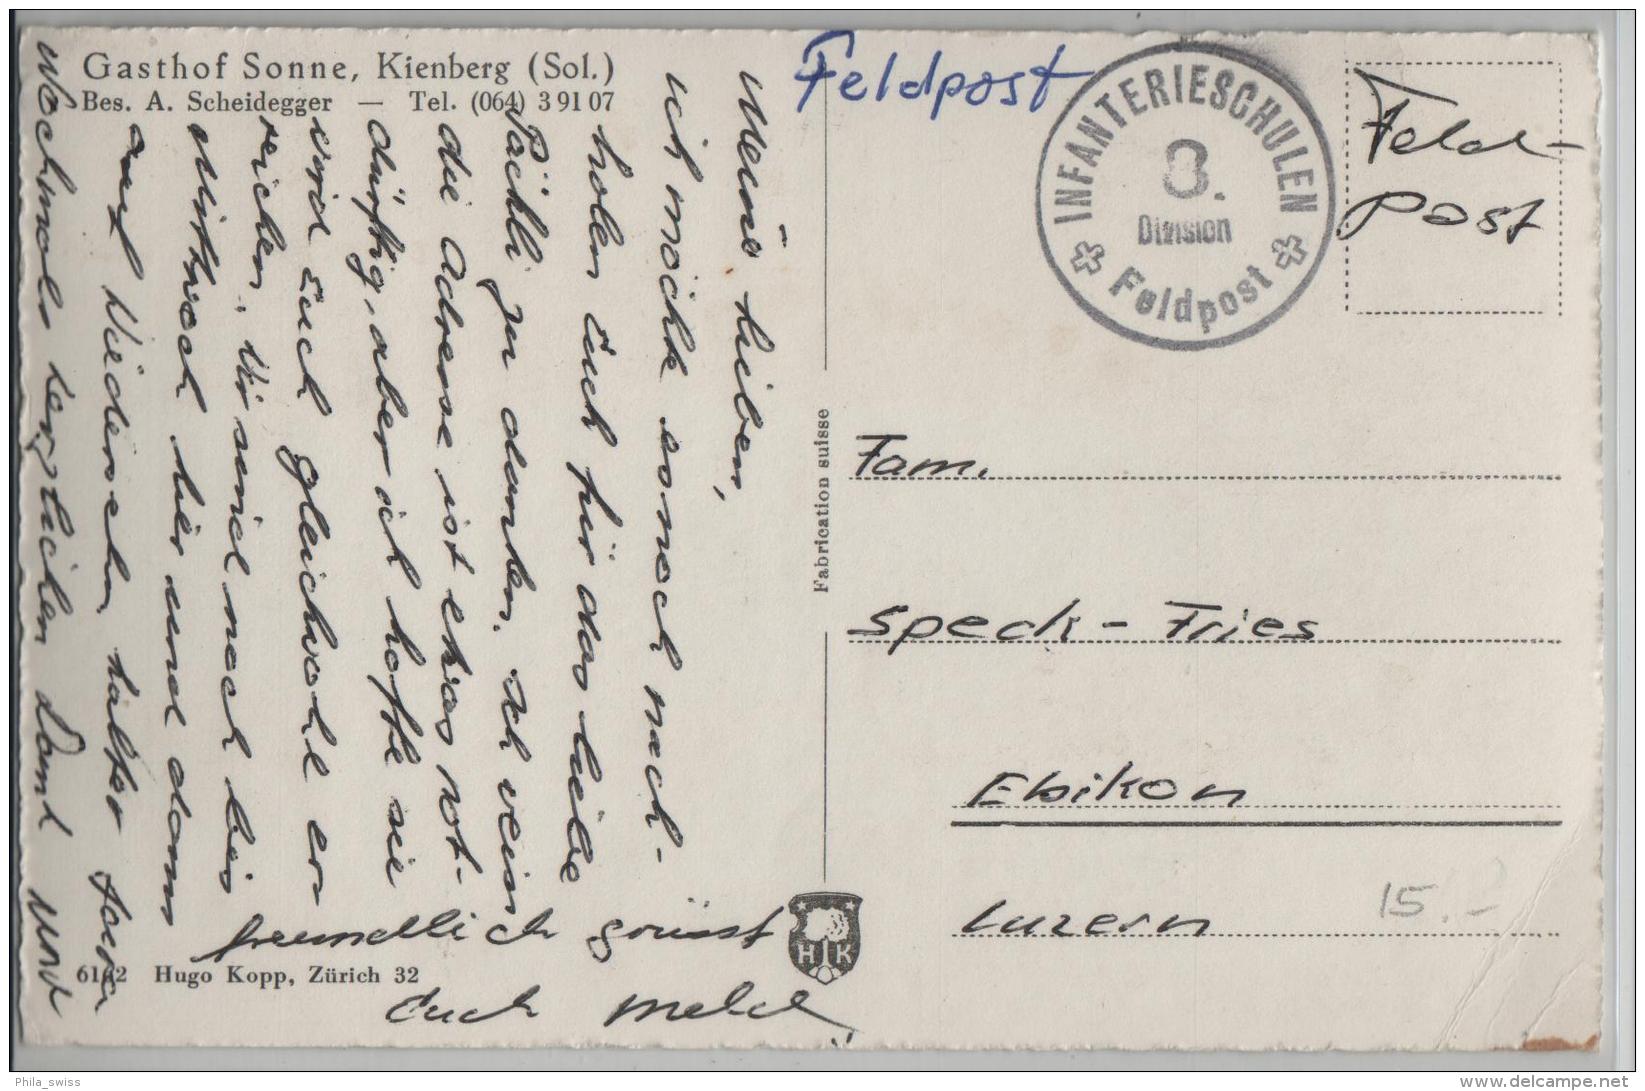 Gasthof Sonne, Kienberg (Sol.)
Bes. A. Scheidegger — Tel. (064) 3 91 07
Meine Lieben,
ich möchte so noch nach-
holen Euch für das liebe
Päckli zu danken. Ich weiss
die Adresse ist etwas not-
dürftig, aber ich hoffe sie
wird Euch gleichwohl er-
reichen. Wir sind noch bis
Mittwoch hier und dann
auf Wiedersehn
Nochmals herzlichen Dank und
freundlich grüsst
Euch
6142 Hugo Kopp, Zürich 32
Fabrication suisse
HK
Feldpost
INFANTERIESCHULEN
8.
Division
Feldpost
Feld-
post
Fam.
Speck - Fries
Ebikon
Luzern
15.-
Phila_swiss
delcampe.net